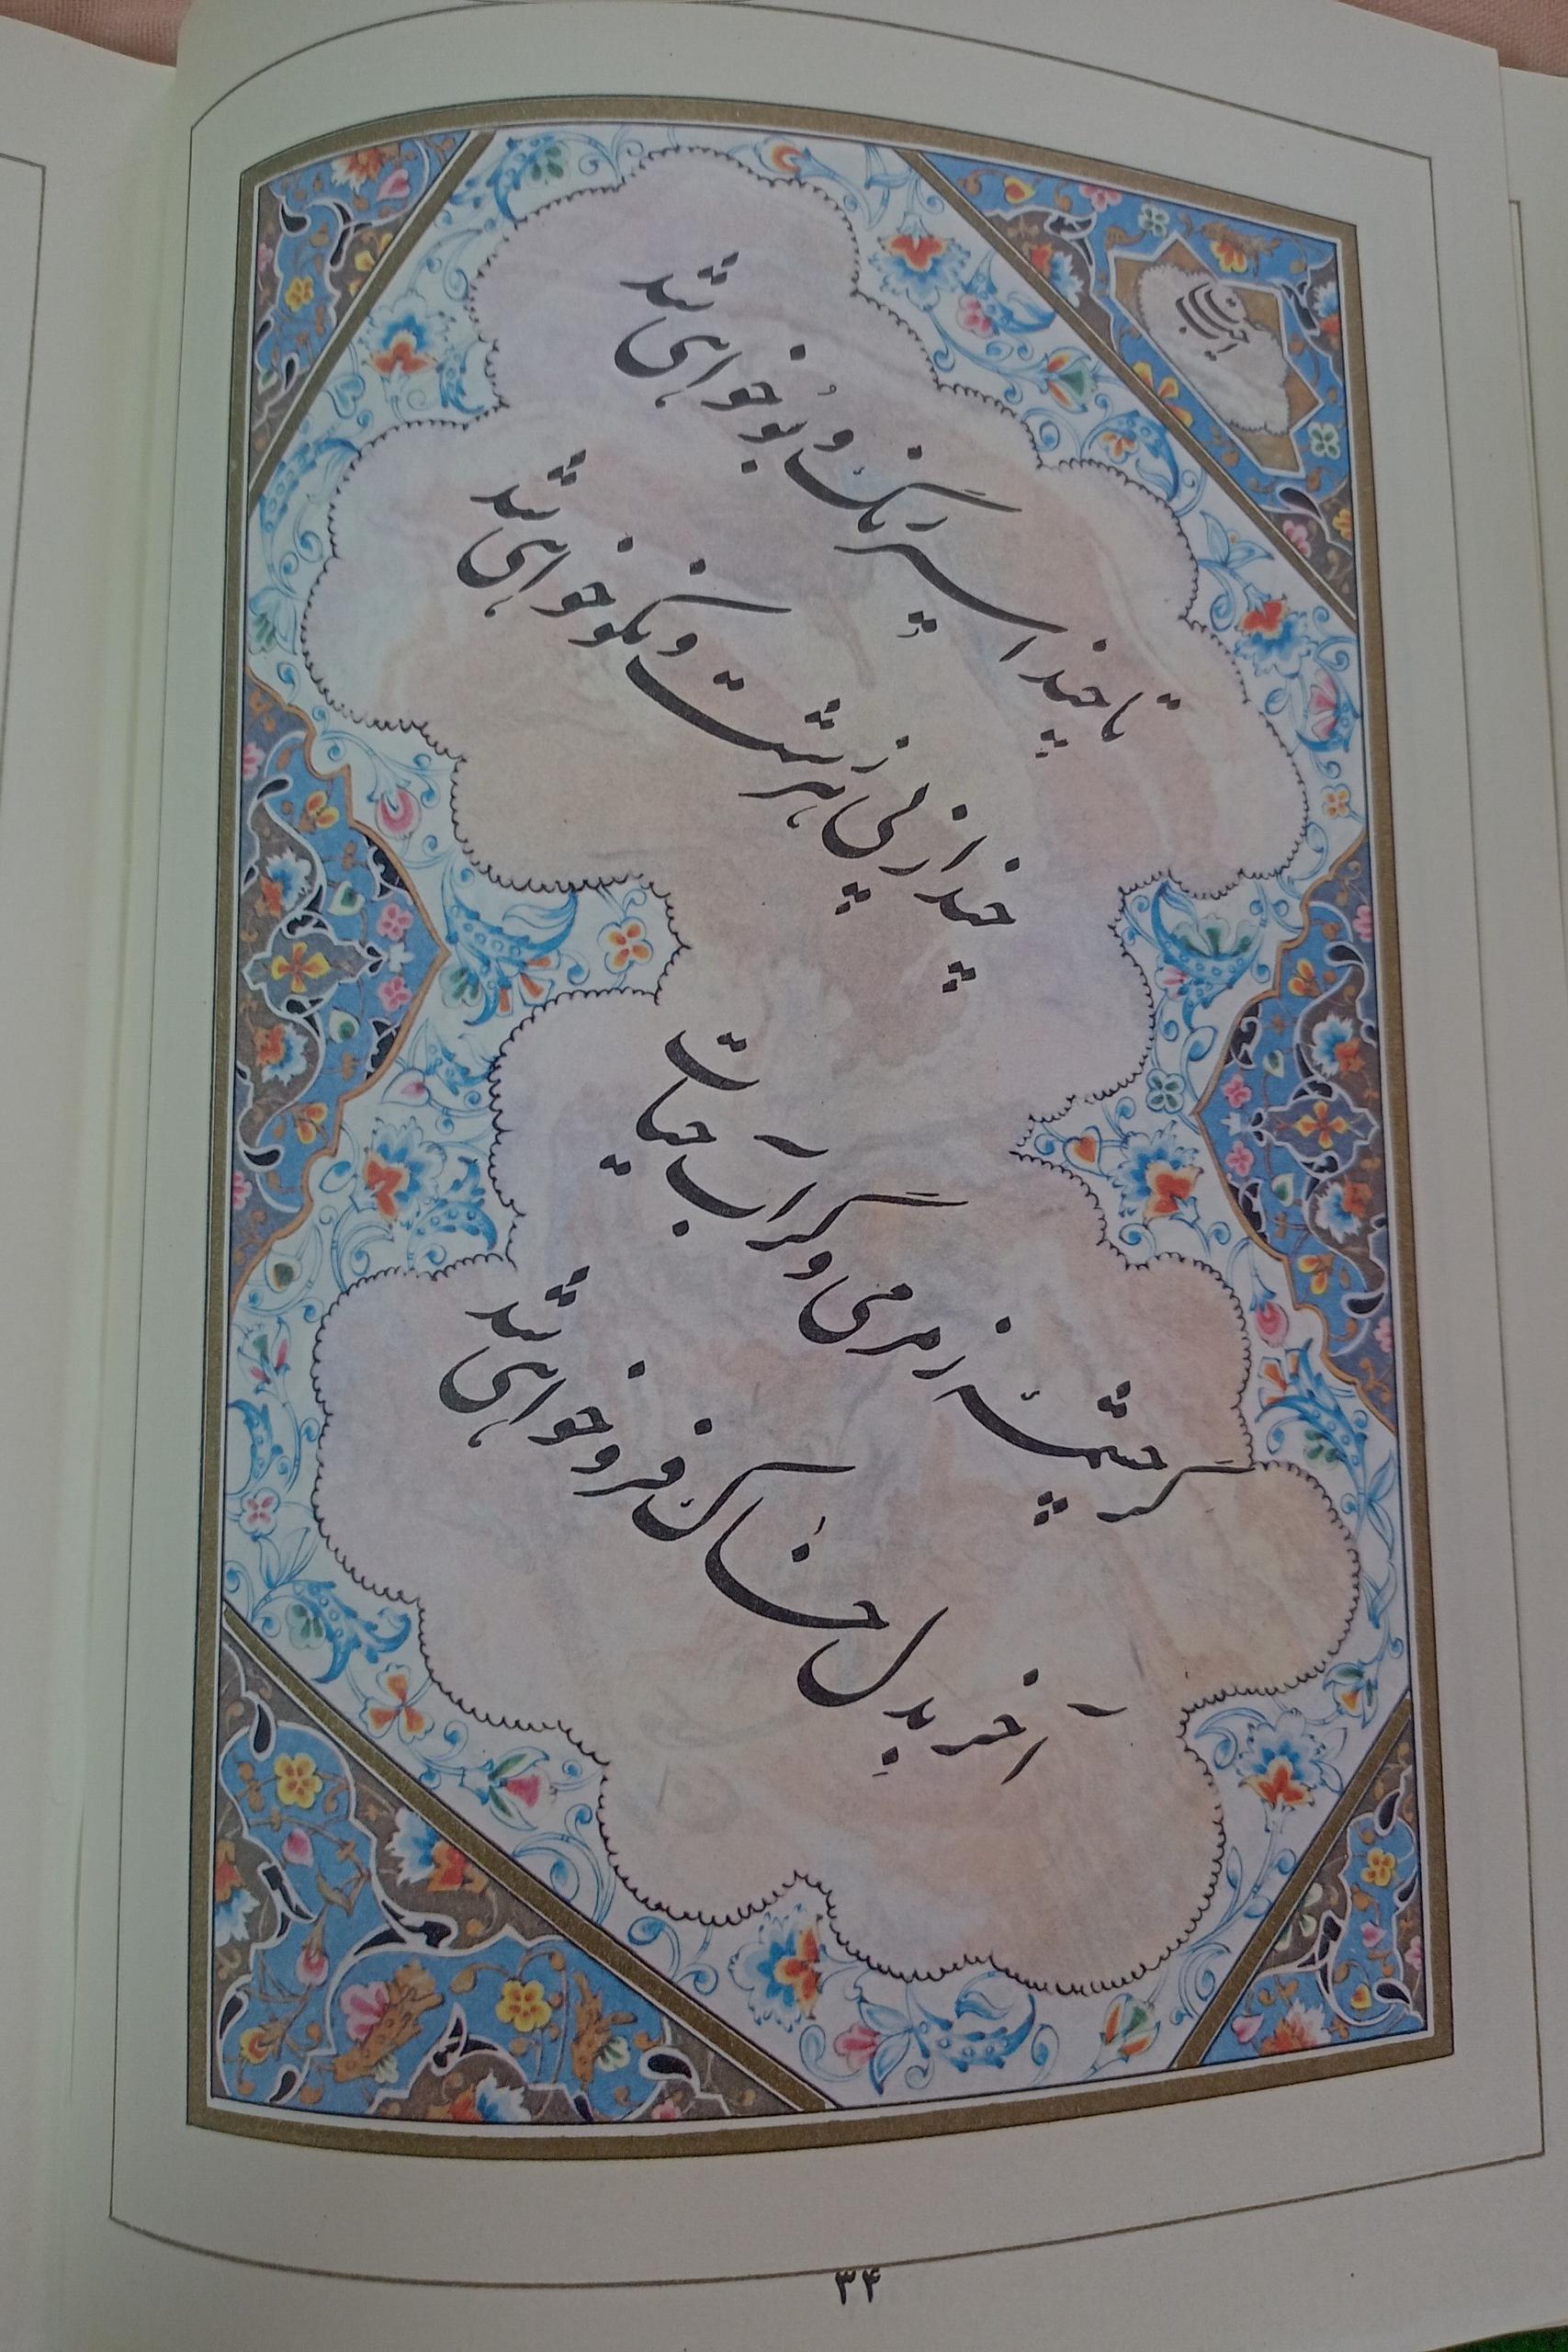 تا چند اسیر رنگ و بو خواهی شد
چند از پی هر زشت و نکو خواهی شد
گر چشمهٔ زمزمی و گر آب حیات
آخر بدل خاک فرو خواهی شد
۳۴